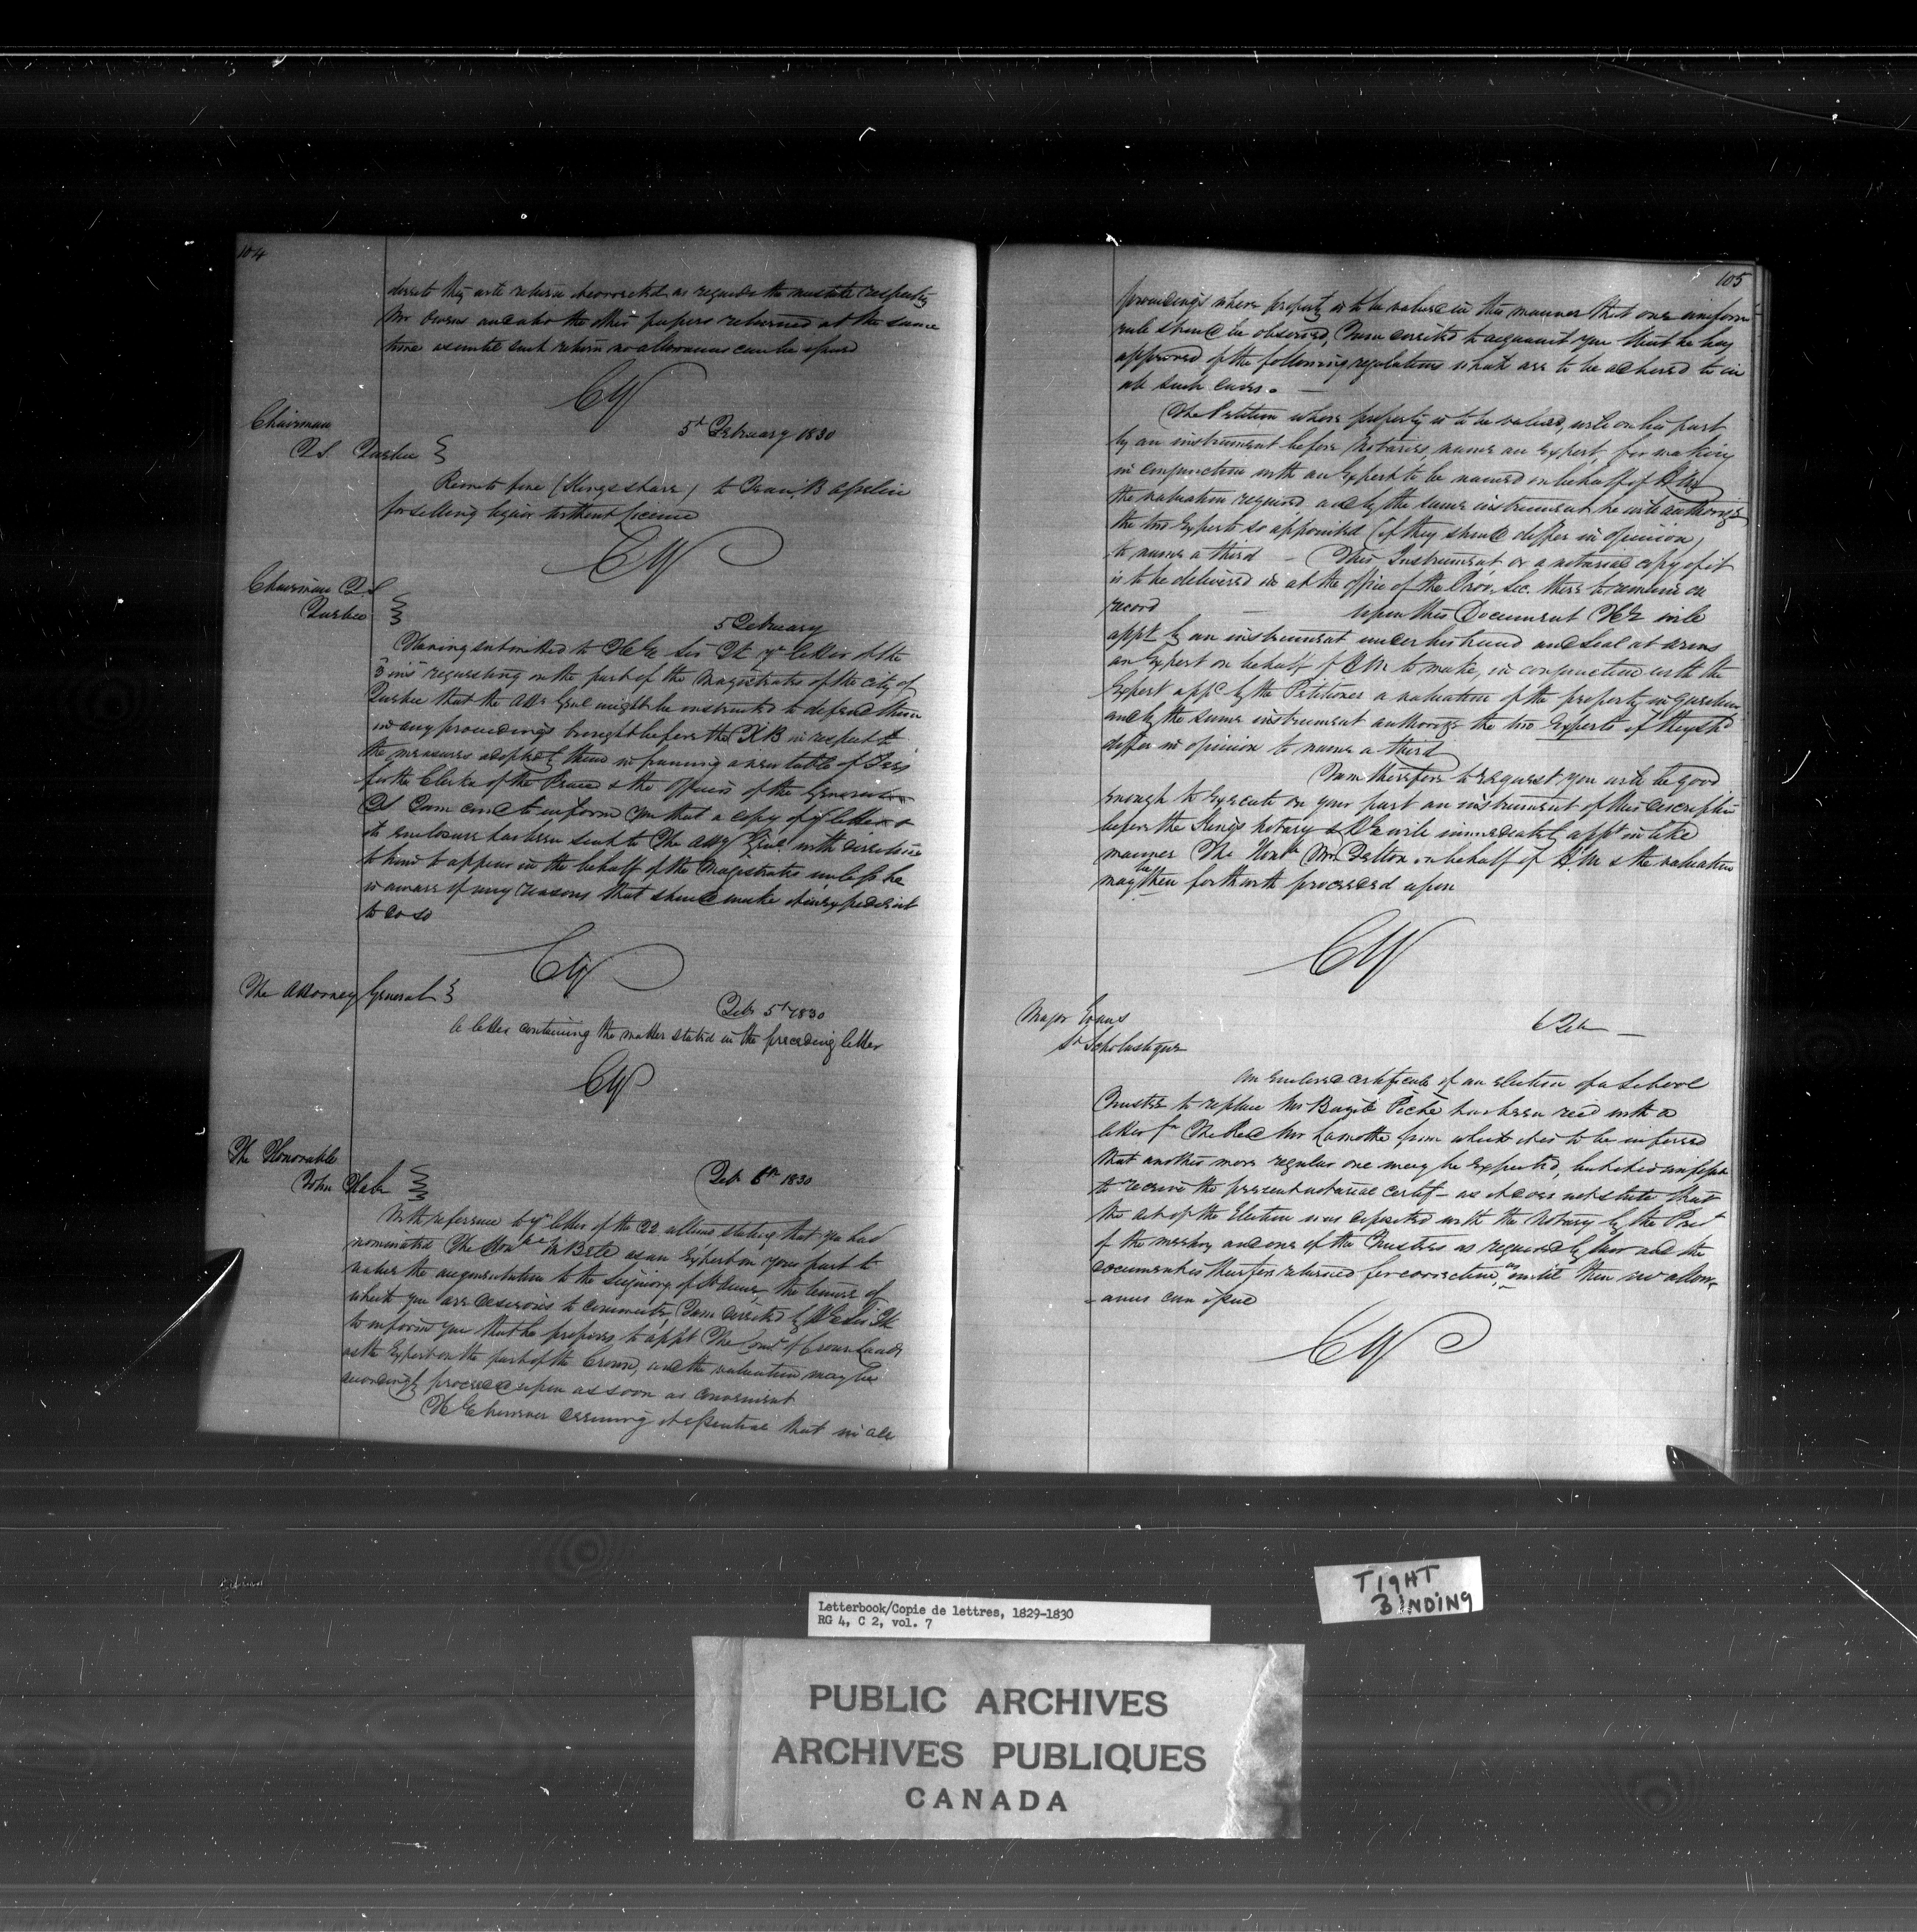 104
direct they will return it corrected as regards the mistake respecting
Mr Owens and also the other papers returned at the same
time as until such return no allowances can be issued
CY
5th February 1830
Chairman
QS Quebec
Remits fine (Kings share) to Frans B Asselin
for selling liquor without Licence
CY
Chairman QS
Quebec
5 February
Having submitted to H Ex Sir Js yr letter of the
3 inst requesting on the part of the Magistrates of the City of
Quebec that the Atty Genl might be instructed to defend them
in any proceedings brought before the KB in respect to
the measures adopted by them in framing a new table of Fees
for the Clerks of the Peace & the Officers of the General
QS I am comd to inform you that a copy of yr letter &
its enclosure has been sent to the Atty Genl with directions
to him to appear in the behalf of the Magistrates unless he
is aware of any reasons that should make it inexpedient
to do so
CY
The Attorney General
Feb 5th 1830
A letter containing the matter stated in the preceding letter
CY
The Honorable
John Hale
Feb 6th 1830
With reference to yr letter of the 22 ultimo stating that you had
nominated The Honble Mr Bell as an Expert on your part to
value the augmentation to the Seigniory of St Anne, the tenure of
which you are desirous to commute, I am directed by H Ex Sir Js
to inform you that he proposes to appt The Comr of Crown Lands
as the Expert on the part of the Crown, and the valuation may be
accordingly proceeded upon as soon as convenient
H E however deeming it essential that in all
105
proceedings where property is to be valued in this manner that one uniform
rule should be observed, I am directed to acquaint you that he has
approved of the following regulations which are to be adhered to in
all such cases. —
The Petitioner whose property is to be valued, will on his part
by an instrument before Notaries, name an Expert, for making
in conjunction with an Expert to be named on behalf of H M
the valuation required and by the same instrument he will authorize
the two Experts so appointed (if they should differ in opinion)
to name a third — This Instrument or a notarial copy of it
is to be delivered in at the office of the Prov. Sec. there to remain on
record — Upon this Document H E will
appt by an instrument under his hand and Seal at arms
an Expert on behalf of H M to make, in conjunction with the
Expert appd by the Petitioner a valuation of the property in question
and by the same instrument authorize the two Experts if they shd
differ in opinion to name a third
I am therefore to request you will be good
enough to execute on your part an instrument of this description
before the Kings Notary & H E will immediately appt in like
manner The Honble Mr Felton on behalf of H.M & the valuation
may be then forthwith proceeded upon
CY
Major Evans
St Scholastique
6 Feb —
An enclosed certificate of an election of a School
Trustee to replace Mr Bazile Piché has been recd with a
letter fm The Revd Mr Lamothe from which it is to be inferred
that another more regular one may be expected, but it is impossible
to receive the present notarial certif — as it does not state that
the act of the Election was deposited with the Notary by the Presdt
of the meeting and one of the Trustees as required by law and the
document is therefore returned for correction, as until then no allow-
-ances can issue
CY
TIGHT
BINDING
Letterbook/Copie de lettres, 1829-1830
RG 4, C 2, vol. 7
PUBLIC ARCHIVES
ARCHIVES PUBLIQUES
CANADA